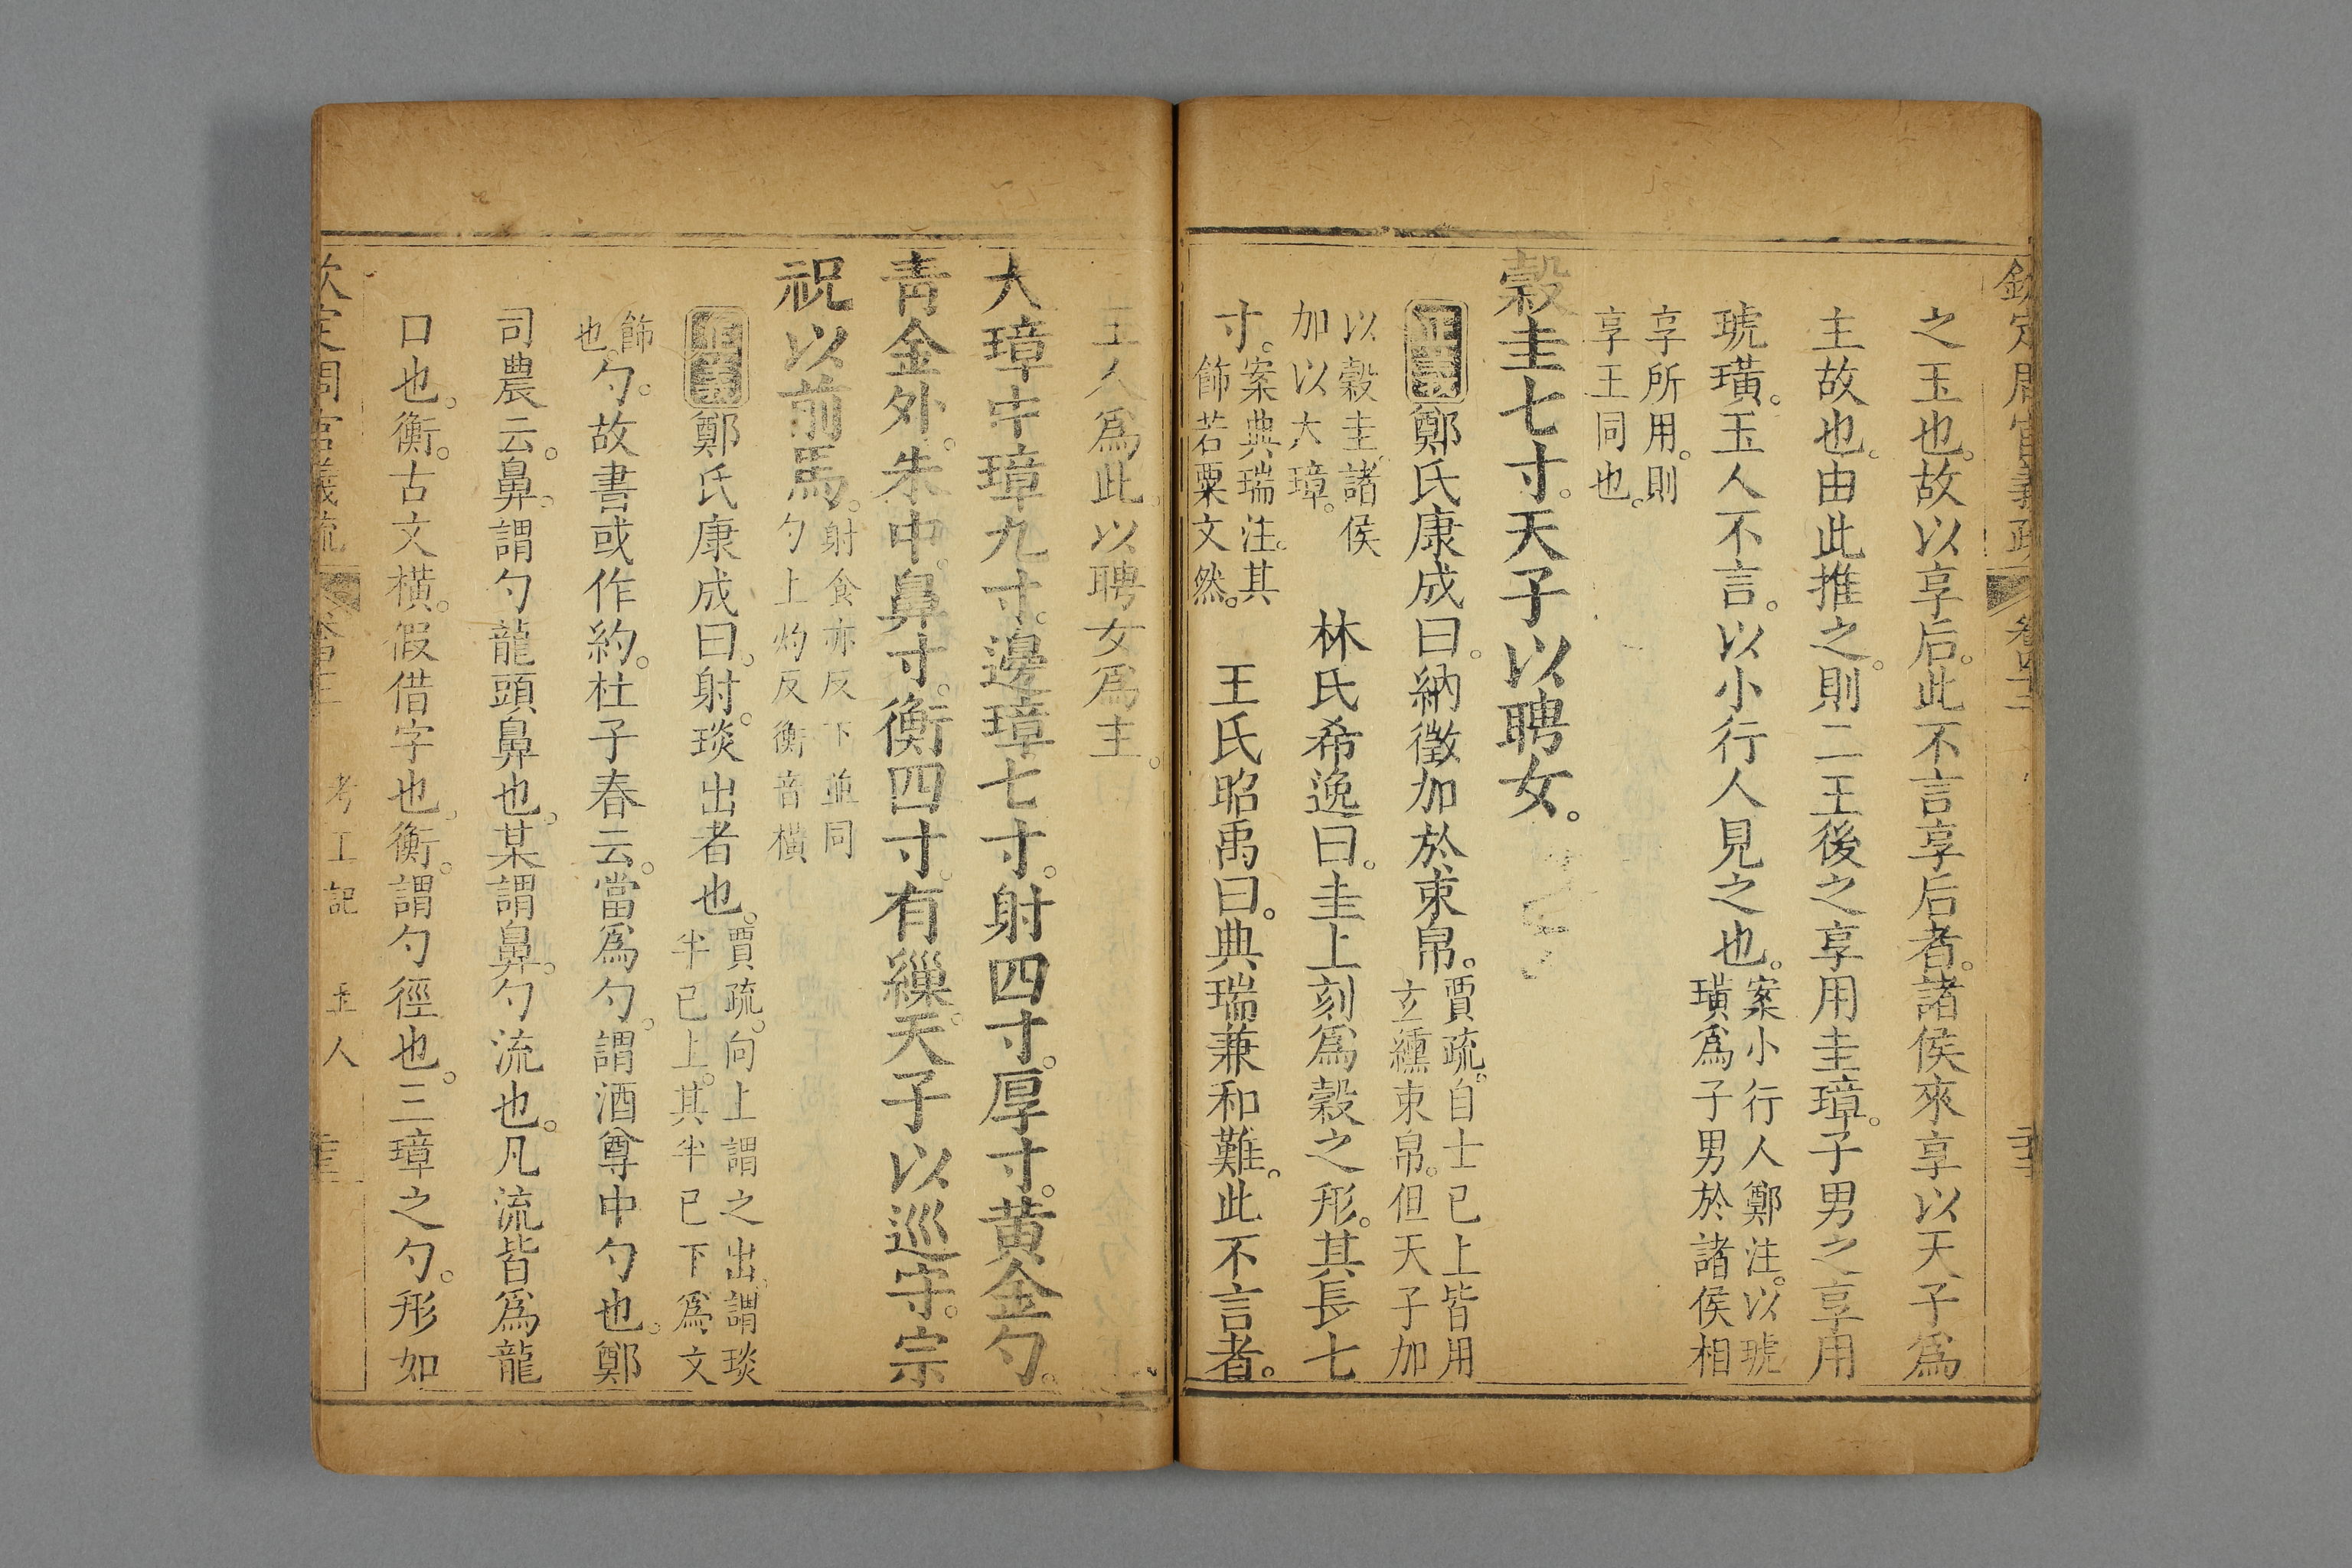 欽定周官義疏 卷四十三
之玉也。故以享后。此不言享后者。諸侯來享以天子爲
主故也。由此推之。則二王後之享用圭璋。子男之享用
琥璜。玉人不言。以小行人見之也。案小行人鄭注。以琥
璜爲子男於諸侯相
享所用。則
享王同也。
穀圭七寸。天子以聘女。
正義鄭氏康成曰。納徵加於束帛。賈疏。自士已上皆用
玄纁束帛。但天子加
以穀圭。諸侯
加以大璋。
林氏希逸曰。圭上刻爲穀之形。其長七
寸。案典瑞注。其
飾若粟文然。
王氏昭禹曰。典瑞兼和難。此不言者。
玉人爲此。以聘女爲主。
大璋中璋九寸。邊璋七寸。射四寸。厚寸。黄金勺。
青金外。朱中。鼻寸。衡四寸。有繅。天子以巡守。宗
祝以前馬。射食亦反下並同
勺上灼反衡音橫
正義鄭氏康成曰。射。琰出者也。賈疏。向上謂之出。謂琰
半已上。其半已下爲文
飾
也。
勺。故書或作約。杜子春云。當爲勺。謂酒尊中勺也。鄭
司農云。鼻。謂勺龍頭鼻也。某謂鼻。勺流也。凡流皆爲龍
口也。衡。古文橫。假借字也。衡。謂勺徑也。三璋之勺。形如
欽定周官義疏 考工記 玉人